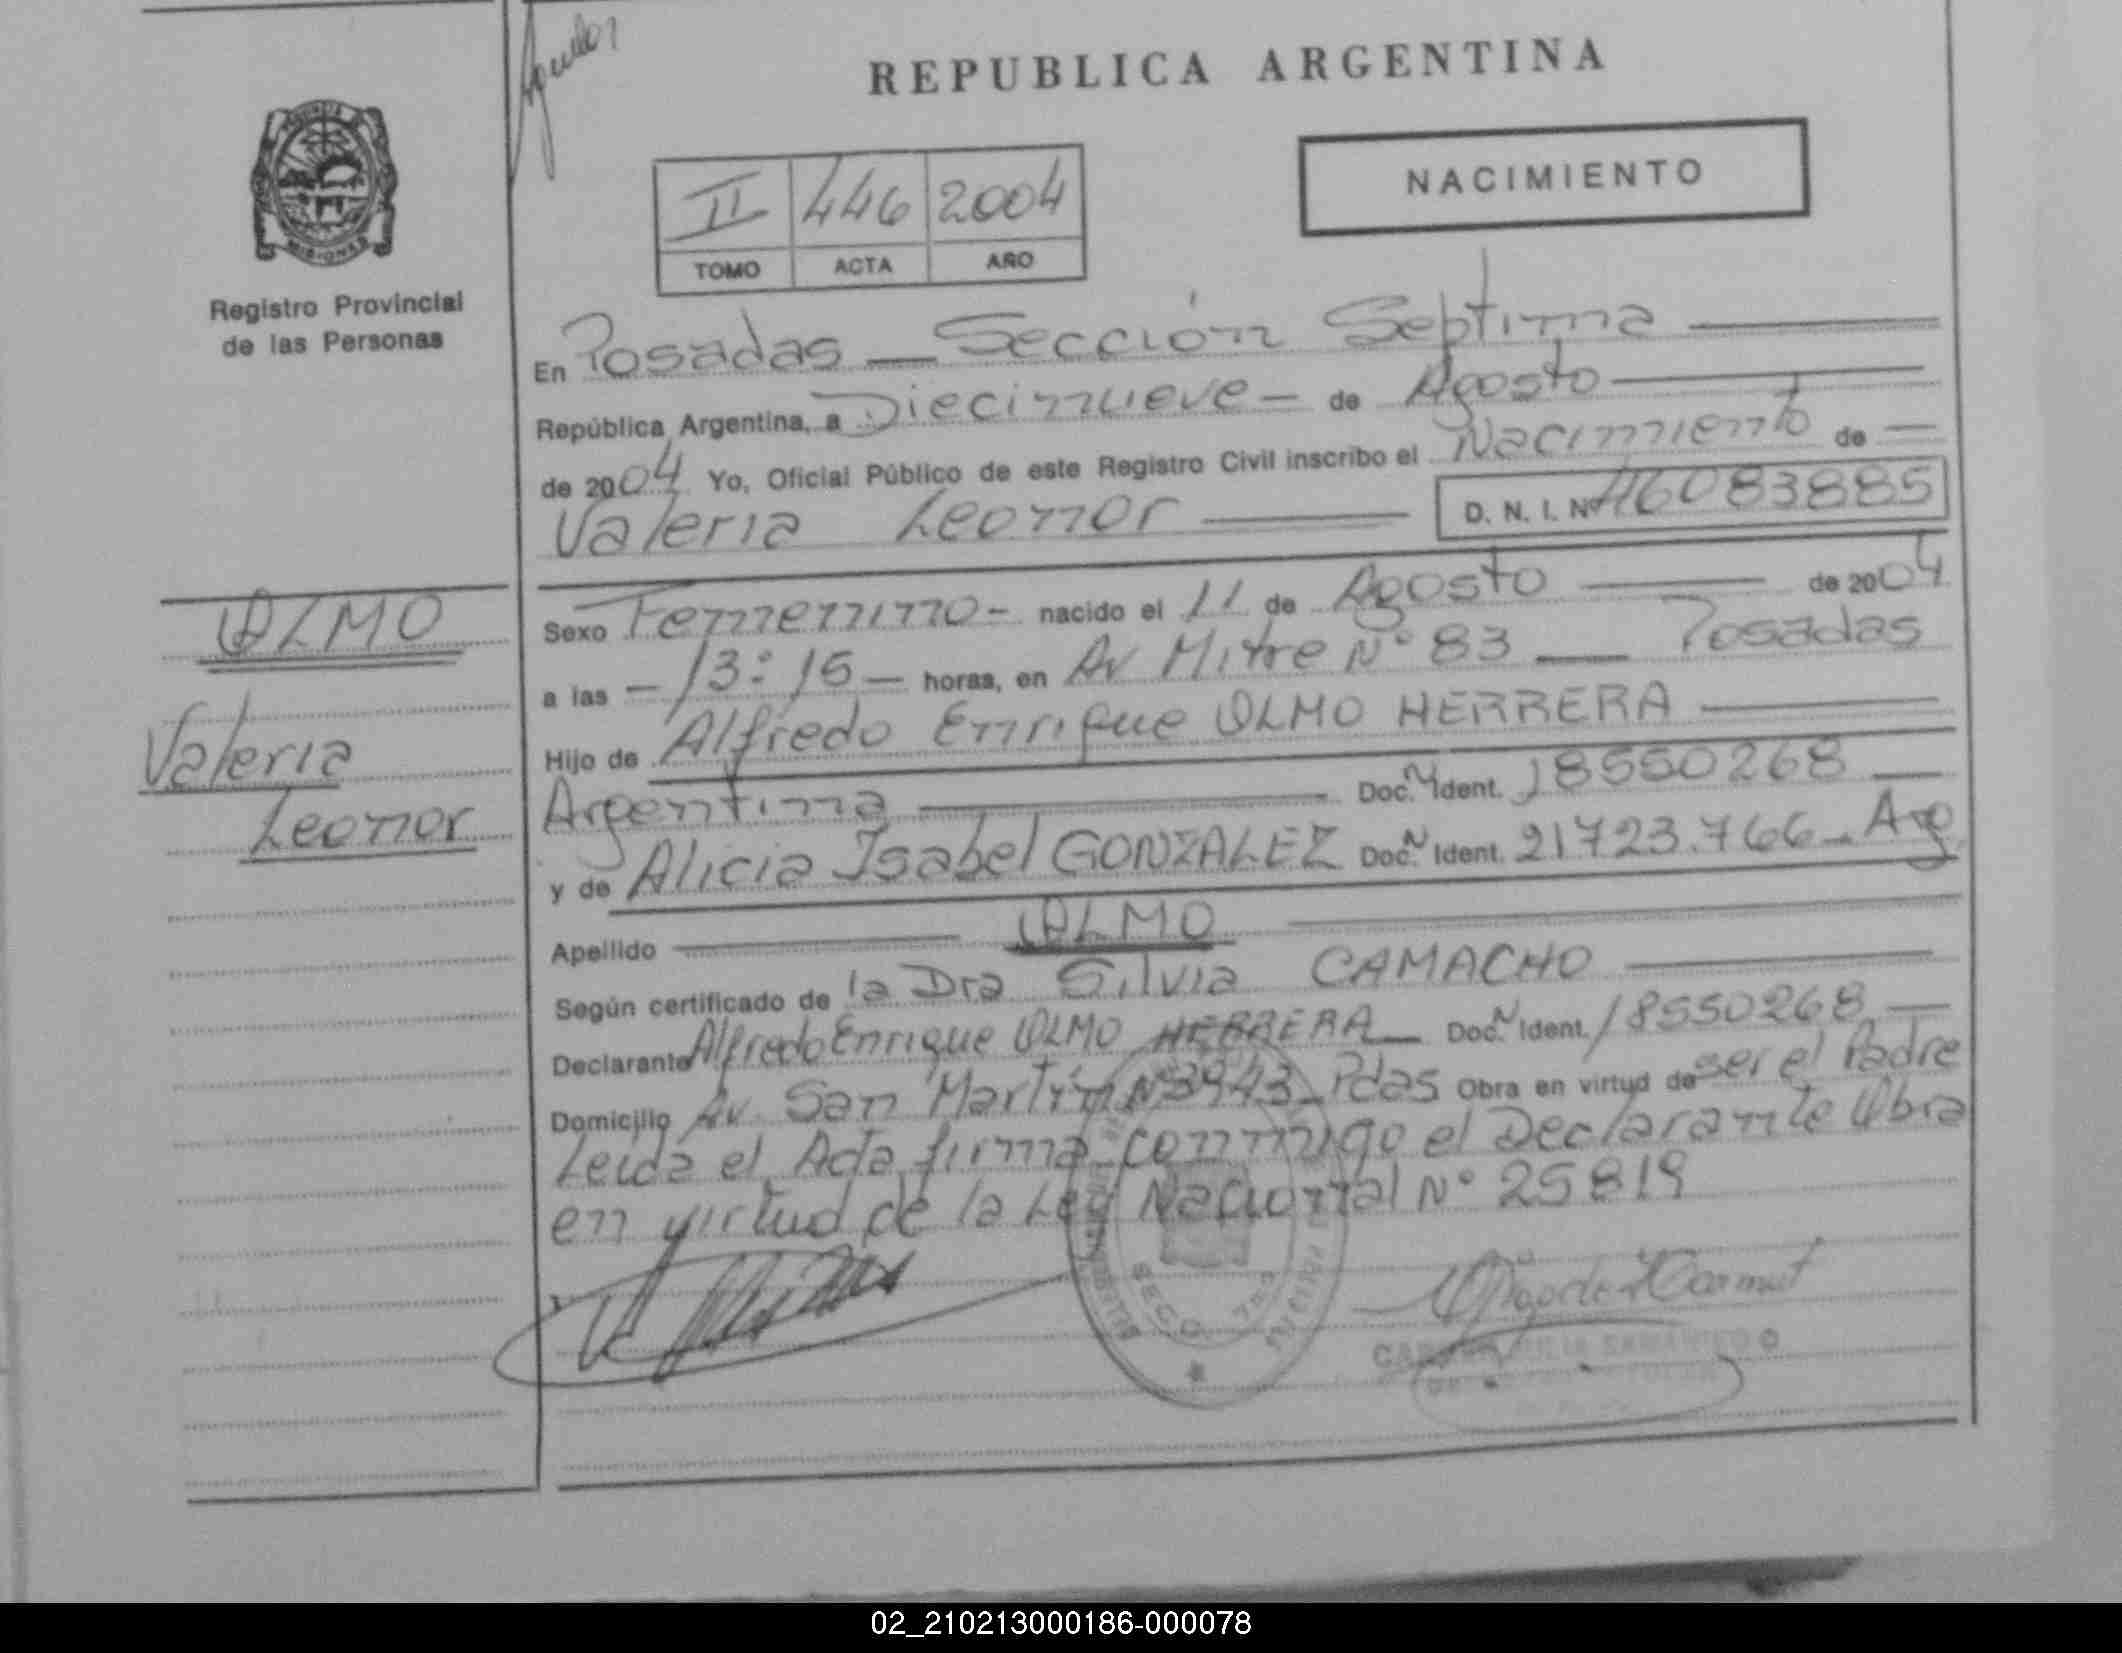 REPUBLICA ARGENTINA
PROVINCIA DE MISIONES
Registro Provincial
de las Personas
NACIMIENTO
II 446 2004
TOMO ACTA AÑO
En Posadas — Sección Septima
República Argentina, a Diecinueve — de Agosto
de 2004 Yo, Oficial Público de este Registro Civil inscribo el Nacimiento de —
Valeria Leonor — D. N. I. Nº 46083885
OLMO
Valeria
Leonor
Sexo Femenino - nacido el 11 de Agosto — de 2004
a las - 13:15 - horas, en Av Mitre Nº 83 — Posadas
Hijo de Alfredo Enrique OLMO HERRERA
Argentina — Doc. N Ident. 18550268 —
y de Alicia Isabel GONZALEZ Doc. N Ident. 21723.766 - Arg
Apellido — OLMO
Según certificado de la Dra Silvia CAMACHO
Declarante Alfredo Enrique OLMO HERRERA — Doc. N Ident. 18550268 —
Domicilio Av. San Martín Nº 3943 - Pdas Obra en virtud de ser el Padre
Leida el Acta firma conmigo el Declarante Obra
en virtud de la Ley Nacional Nº 25819
SECC. 7
02_210213000186-000078